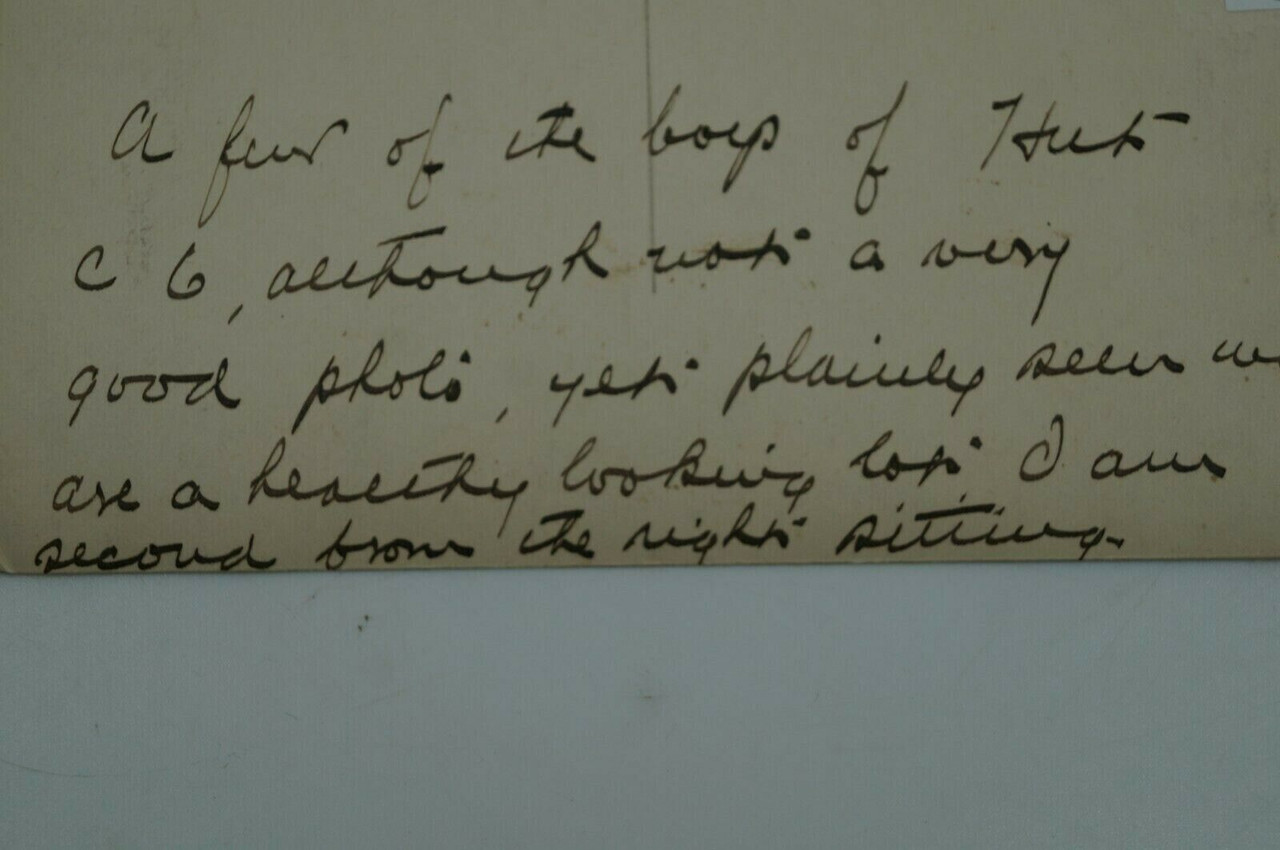 A few of the boys of Hut
C 6, although not a very
good photo, yet plainly seen we
are a healthy looking lot. I am
second from the right sitting.